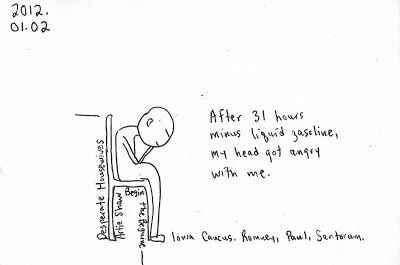 2012.
01.02
After 31 hours
minus liquid gasoline,
my head got angry
with me.
Desperate Housewives
Artie Shaw
Begin
the Beguine
Iowa Caucus. Romney, Paul, Santorum.